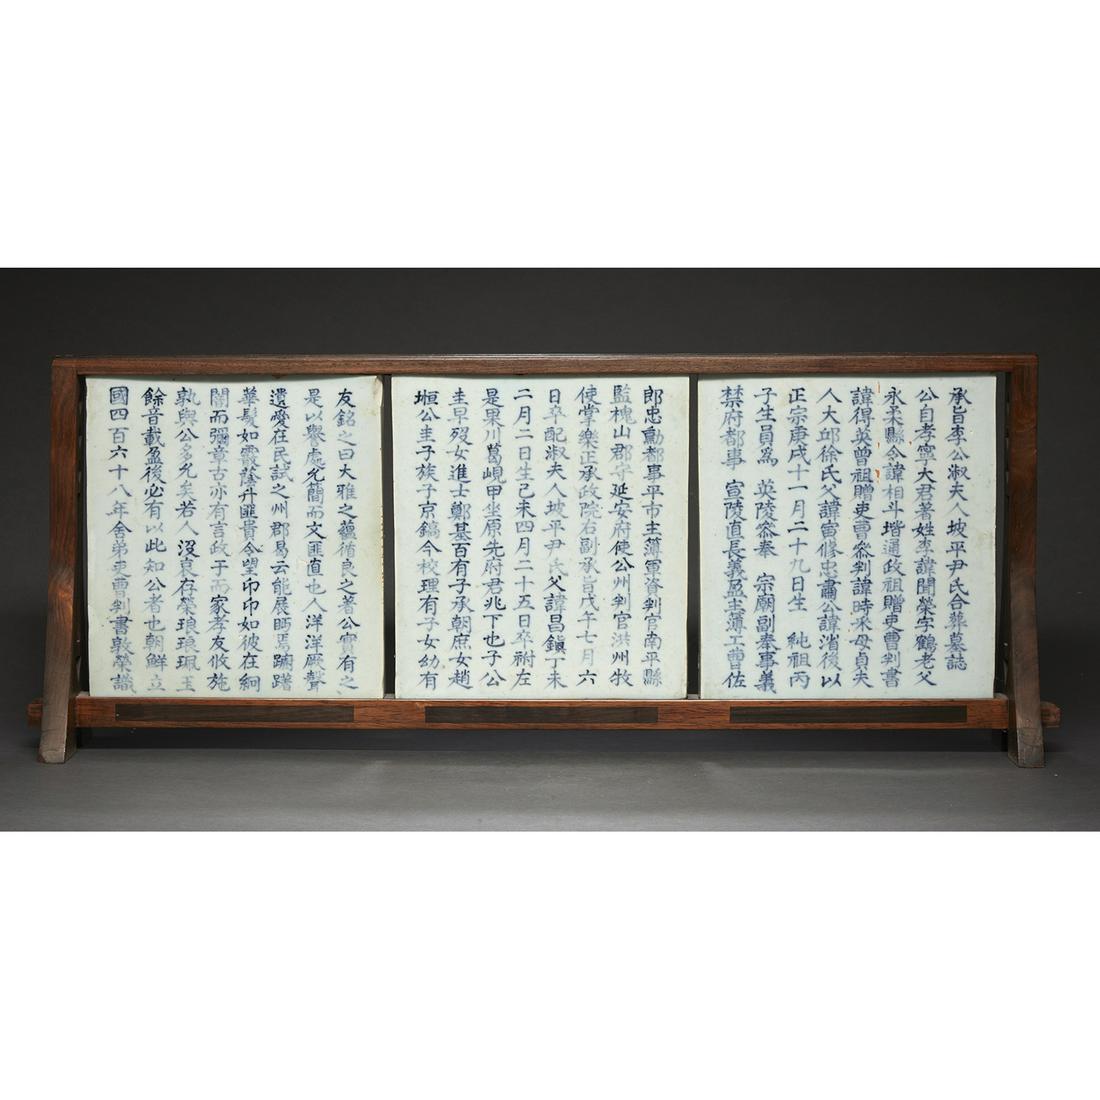 承旨李公淑夫人坡平尹氏合葬墓誌
公自孝寧大君著姓李諱聞榮字鶴老父
永柔縣令諱相斗堦通政祖贈吏曹判書
諱得英曾祖贈吏曹叅判諱時釆母貞夫
人大邱徐氏父諱寅修忠肅公諱渻後以
正宗庚戌十一月二十九日生 純祖丙
子生員爲 英陵叅奉 宗廟副奉事義
禁府都事 宣陵直長義盈主薄工曹佐
郎忠勳都事平市主薄軍資判官南平縣
監槐山郡守延安府使公州判官洪州牧
使掌樂正承政院右副承旨戊午七月六
日卒配淑夫人坡平尹氏父諱昌鎭丁未
二月二日生己未四月二十五日卒祔左
是果川葛峴甲坐原先府君兆下也子公
圭早歿女進士鄭基百有子承朝庶女趙
垣公圭子族子京鎬今校理有子女幼有
友銘之曰大雅之蘊循良之著公實有之
是以譽處允簡而文匪直也人洋洋厥聲
遺愛在民試之州郡曷云能展眄焉踊躇
華髮如霜蔭升匪貴令望卬卬如彼在絅
闇而彌章古亦有言政于而家孝友攸施
孰與公多允矣若人沒哀存榮琅琅珮玉
餘音載盈後必有以此知公者也朝鮮立
國四百六十八年舍弟吏曹判書敦榮識